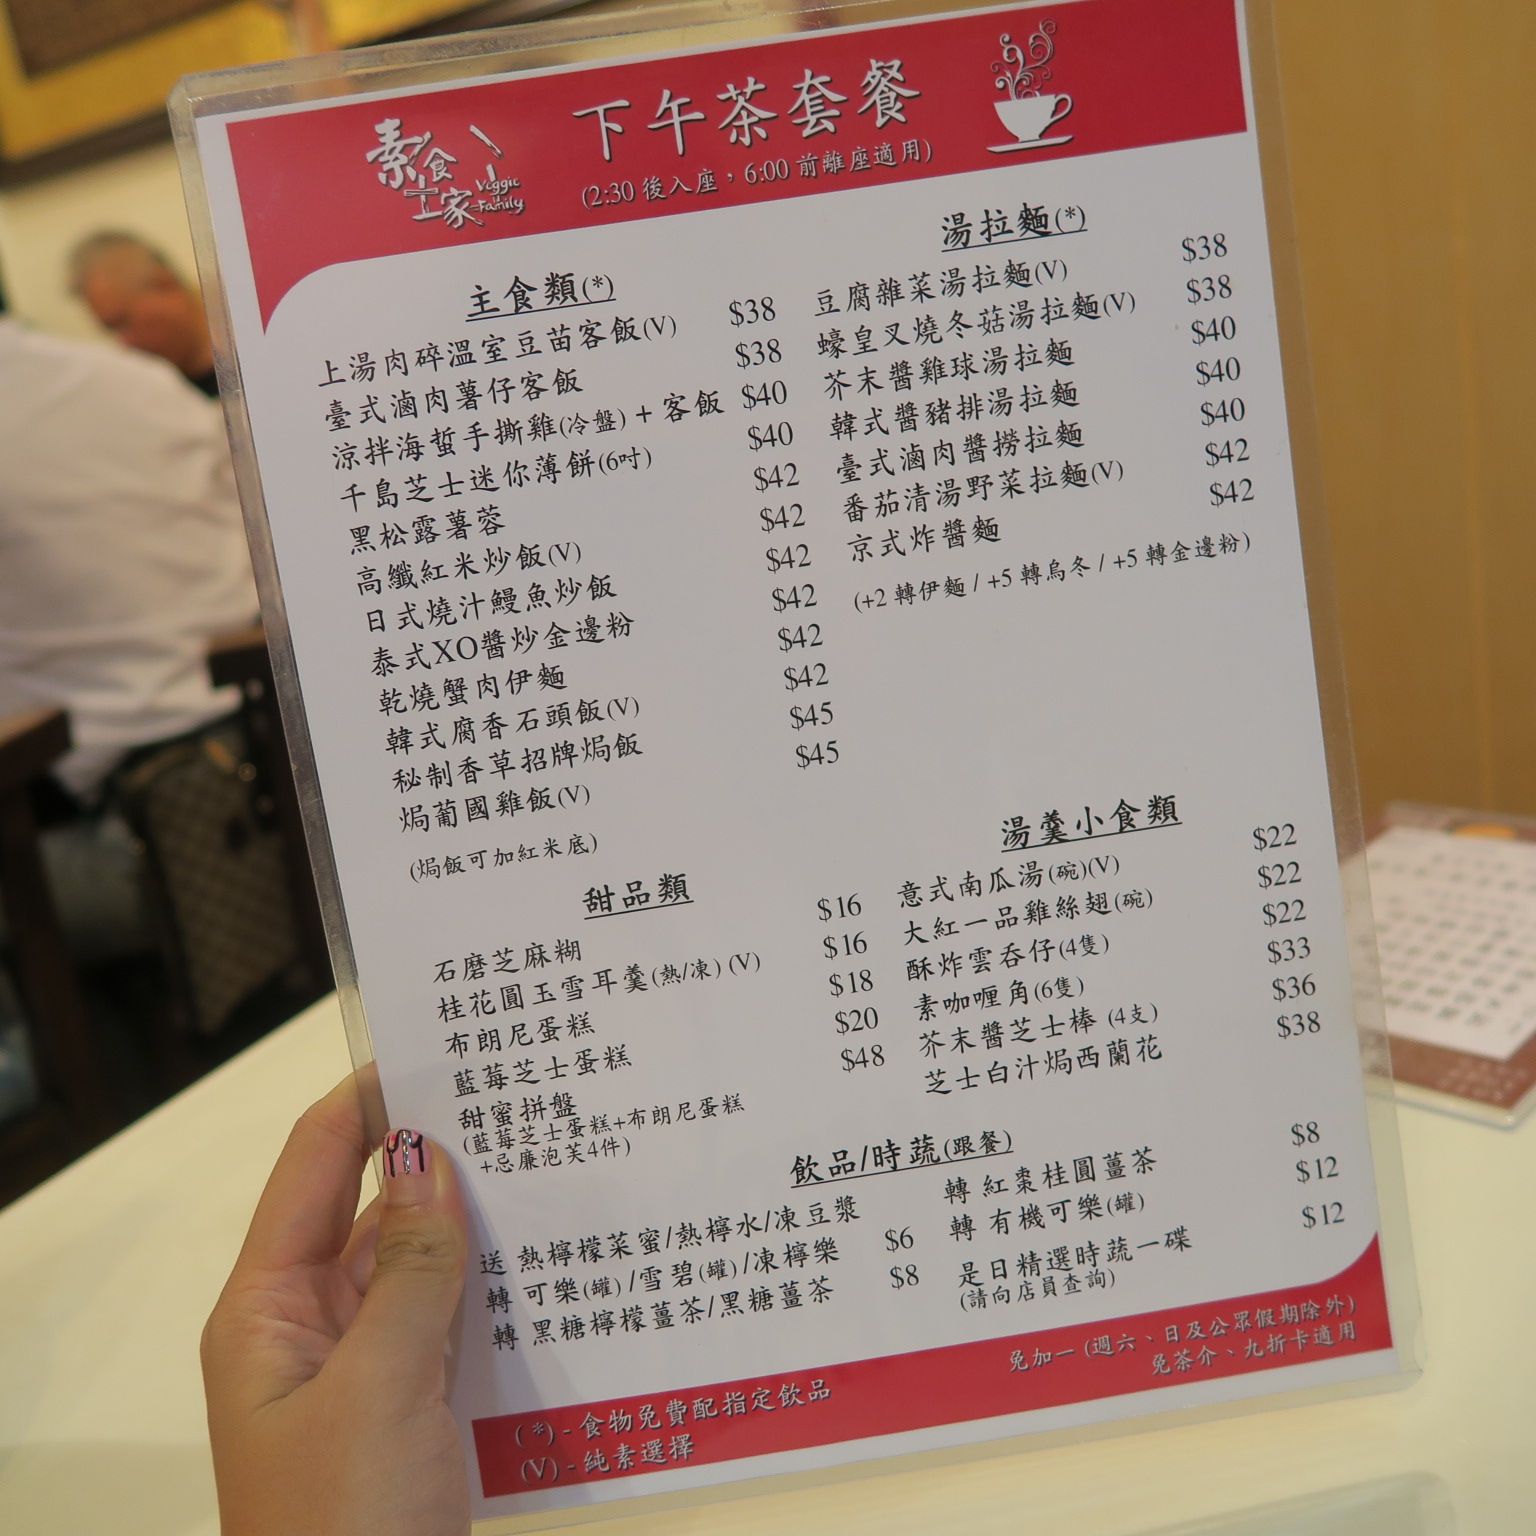 素食工家
Veggie Family
下午茶套餐
(2:30 後入座，6:00 前離座適用)
主食類(*)
上湯肉碎溫室豆苗客飯(V) $38
臺式滷肉薯仔客飯 $38
涼拌海蜇手撕雞(冷盤) + 客飯 $40
千島芝士迷你薄餅(6吋) $40
黑松露薯蓉 $42
高纖紅米炒飯(V) $42
日式燒汁鰻魚炒飯 $42
泰式XO醬炒金邊粉 $42
乾燒蟹肉伊麵 $42
韓式腐香石頭飯(V) $42
秘制香草招牌焗飯 $45
焗葡國雞飯(V) $45
(焗飯可加紅米底)
湯拉麵(*)
豆腐雜菜湯拉麵(V) $38
蠔皇叉燒冬菇湯拉麵(V) $38
芥末醬雞球湯拉麵 $40
韓式醬豬排湯拉麵 $40
臺式滷肉醬撈拉麵 $40
番茄清湯野菜拉麵(V) $42
京式炸醬麵 $42
(+2 轉伊麵 / +5 轉烏冬 / +5 轉金邊粉)
甜品類
石磨芝麻糊 $16
桂花圓玉雪耳羹(熱/凍) (V) $16
布朗尼蛋糕 $18
藍莓芝士蛋糕 $20
甜蜜拼盤 $48
(藍莓芝士蛋糕+布朗尼蛋糕
+忌廉泡芙4件)
湯羹小食類
意式南瓜湯(碗)(V) $22
大紅一品雞絲翅(碗) $22
酥炸雲吞仔(4隻) $22
素咖喱角(6隻) $33
芥末醬芝士棒 (4支) $36
芝士白汁焗西蘭花 $38
飲品/時蔬(跟餐)
送 熱檸檬菜蜜/熱檸水/凍豆漿
轉 可樂(罐)/雪碧(罐)/凍檸樂 $6
轉 黑糖檸檬薑茶/黑糖薑茶 $8
轉 紅棗桂圓薑茶 $8
轉 有機可樂(罐) $12
是日精選時蔬一碟 $12
(請向店員查詢)
(*) - 食物免費配指定飲品
(V) - 純素選擇
免加一 (週六、日及公眾假期除外)
免茶介、九折卡適用